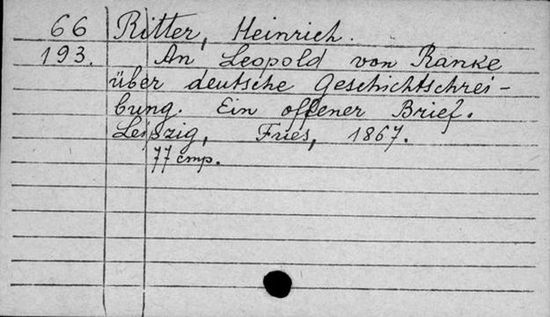 66 Ritter, Heinrich.
193. An Leopold von Ranke
über deutsche Geschichtschrei-
bung. Ein offener Brief.
Leipzig, Fries, 1867.
77 стр.